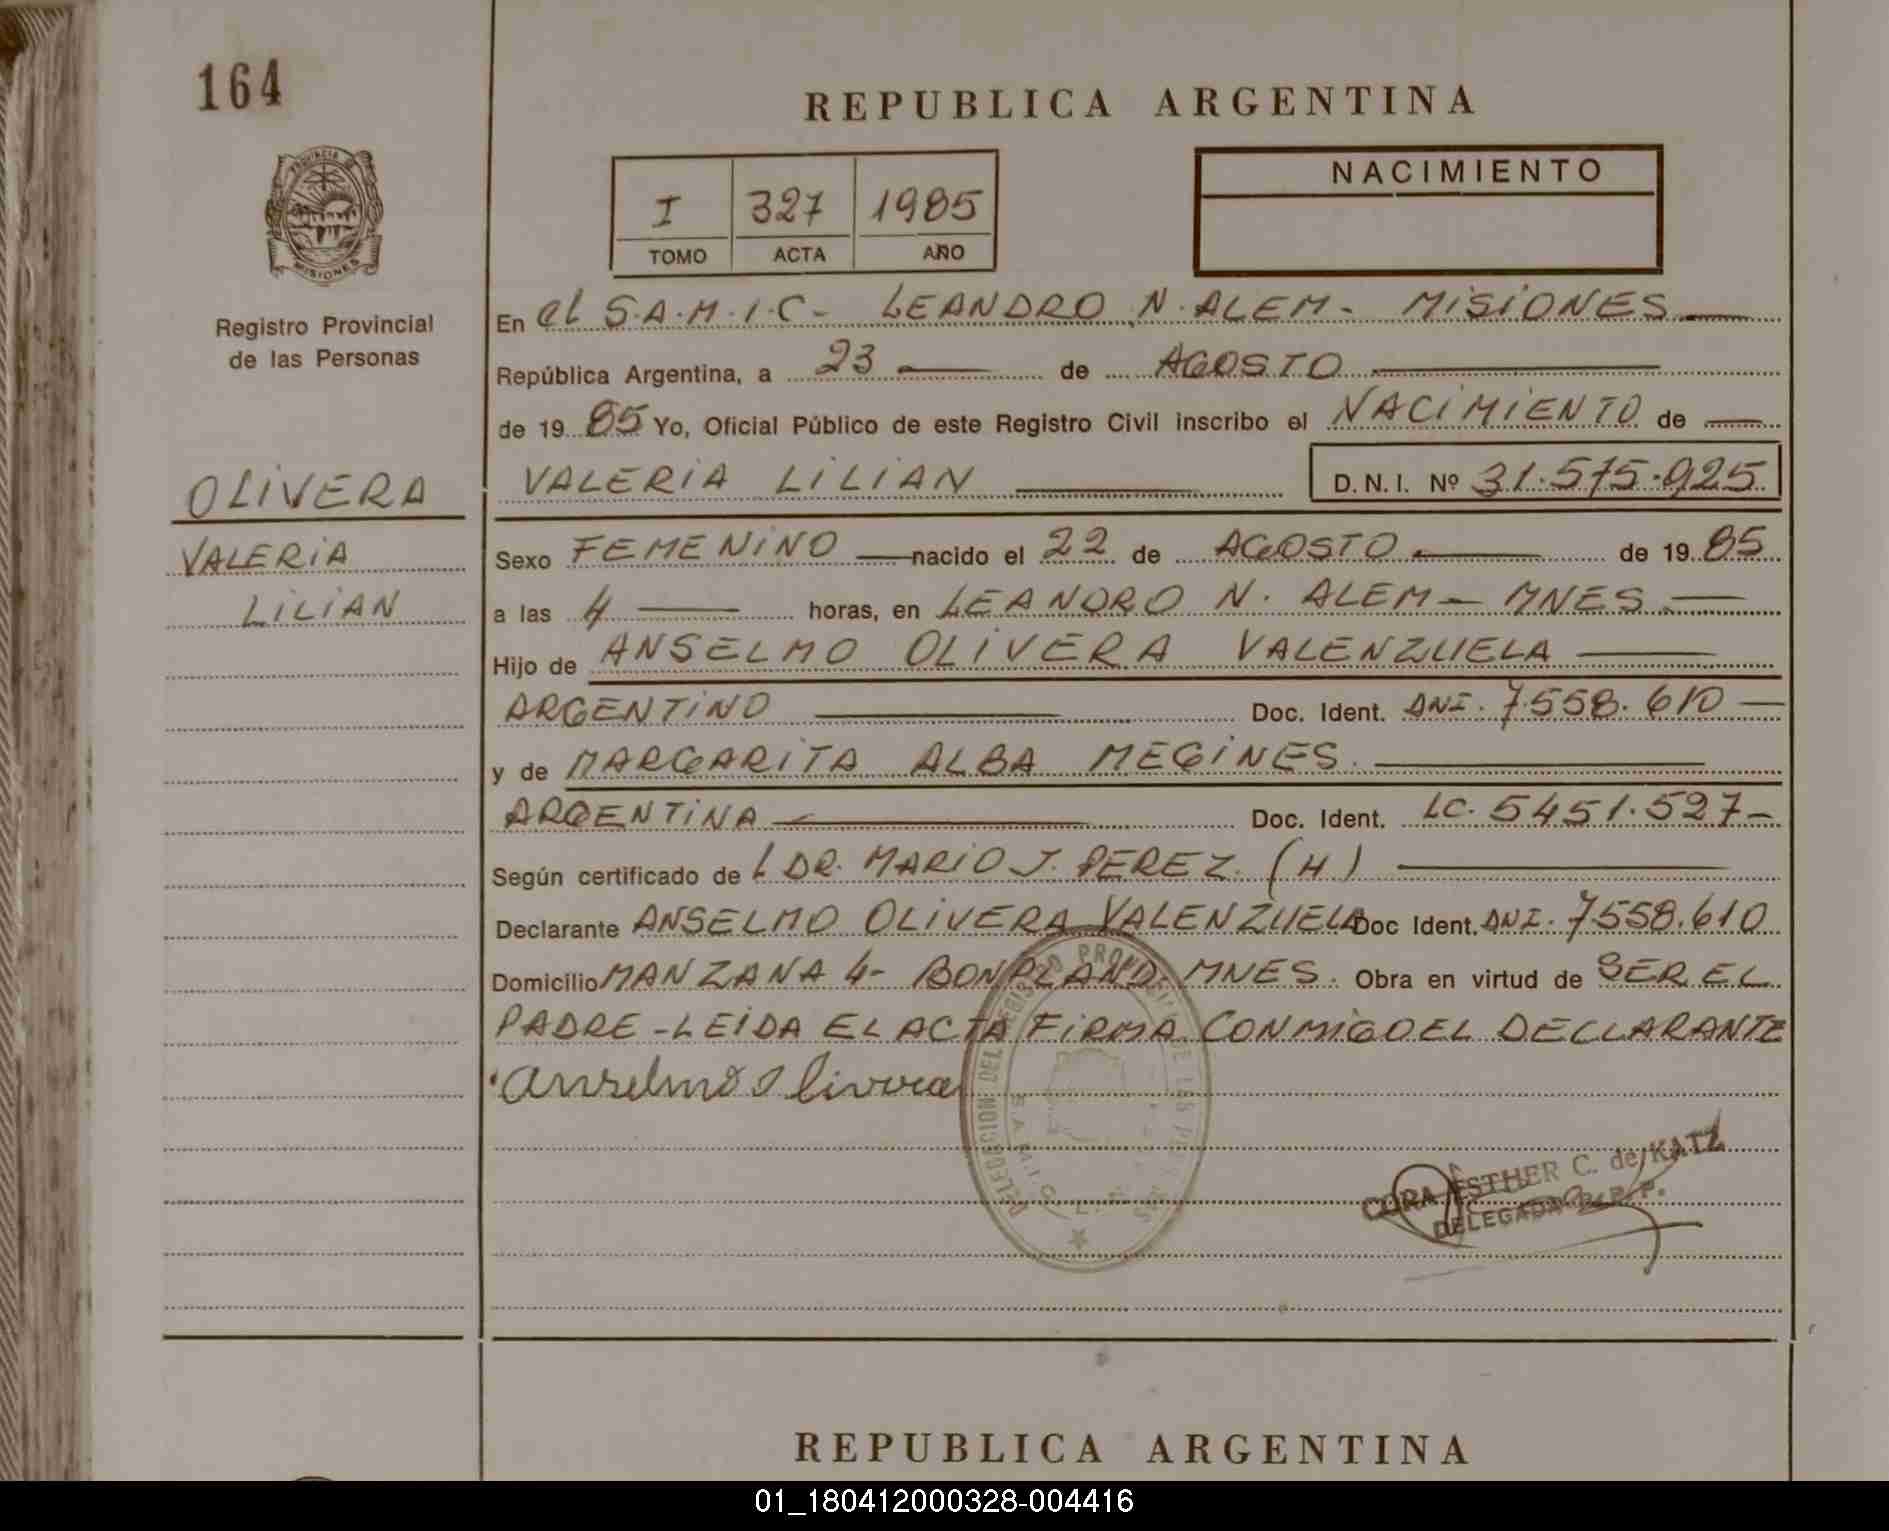 164
REPUBLICA ARGENTINA
PROVINCIA DE
MISIONES
Registro Provincial
de las Personas
I 327 1985
TOMO ACTA AÑO
NACIMIENTO
En el S.A.M.I.C- LEANDRO N. ALEM- MISIONES
República Argentina, a 23 de AGOSTO
de 19 85 Yo, Oficial Público de este Registro Civil inscribo el NACIMIENTO de
VALERIA LILIAN D.N.I. Nº 31.575.925
OLIVERA
VALERIA
LILIAN
Sexo FEMENINO nacido el 22 de AGOSTO de 19 85
a las 4 horas, en LEANDRO N. ALEM - MNES.
Hijo de ANSELMO OLIVERA VALENZUELA
ARGENTINO Doc. Ident. DNI. 7.558.610
y de MARGARITA ALBA MEGINES.
ARGENTINA Doc. Ident. LC. 5451.527-
Según certificado de L DR. MARIO J. PEREZ. (H)
Declarante ANSELMO OLIVERA VALENZUELA Doc Ident. DNI. 7558.610
Domicilio MANZANA 4- BONPLAND. MNES. Obra en virtud de SER EL
PADRE -LEIDA EL ACTA FIRMA CONMIGO EL DECLARANTE
Anselmo Olivera
DELEGACION DEL REGISTRO PROVINCIAL DE LAS PERSONAS
S.A.M.I.C. L.N.
CORA ESTHER C. de KATZ
DELEGADA R.P.P.
REPUBLICA ARGENTINA
01_180412000328-004416